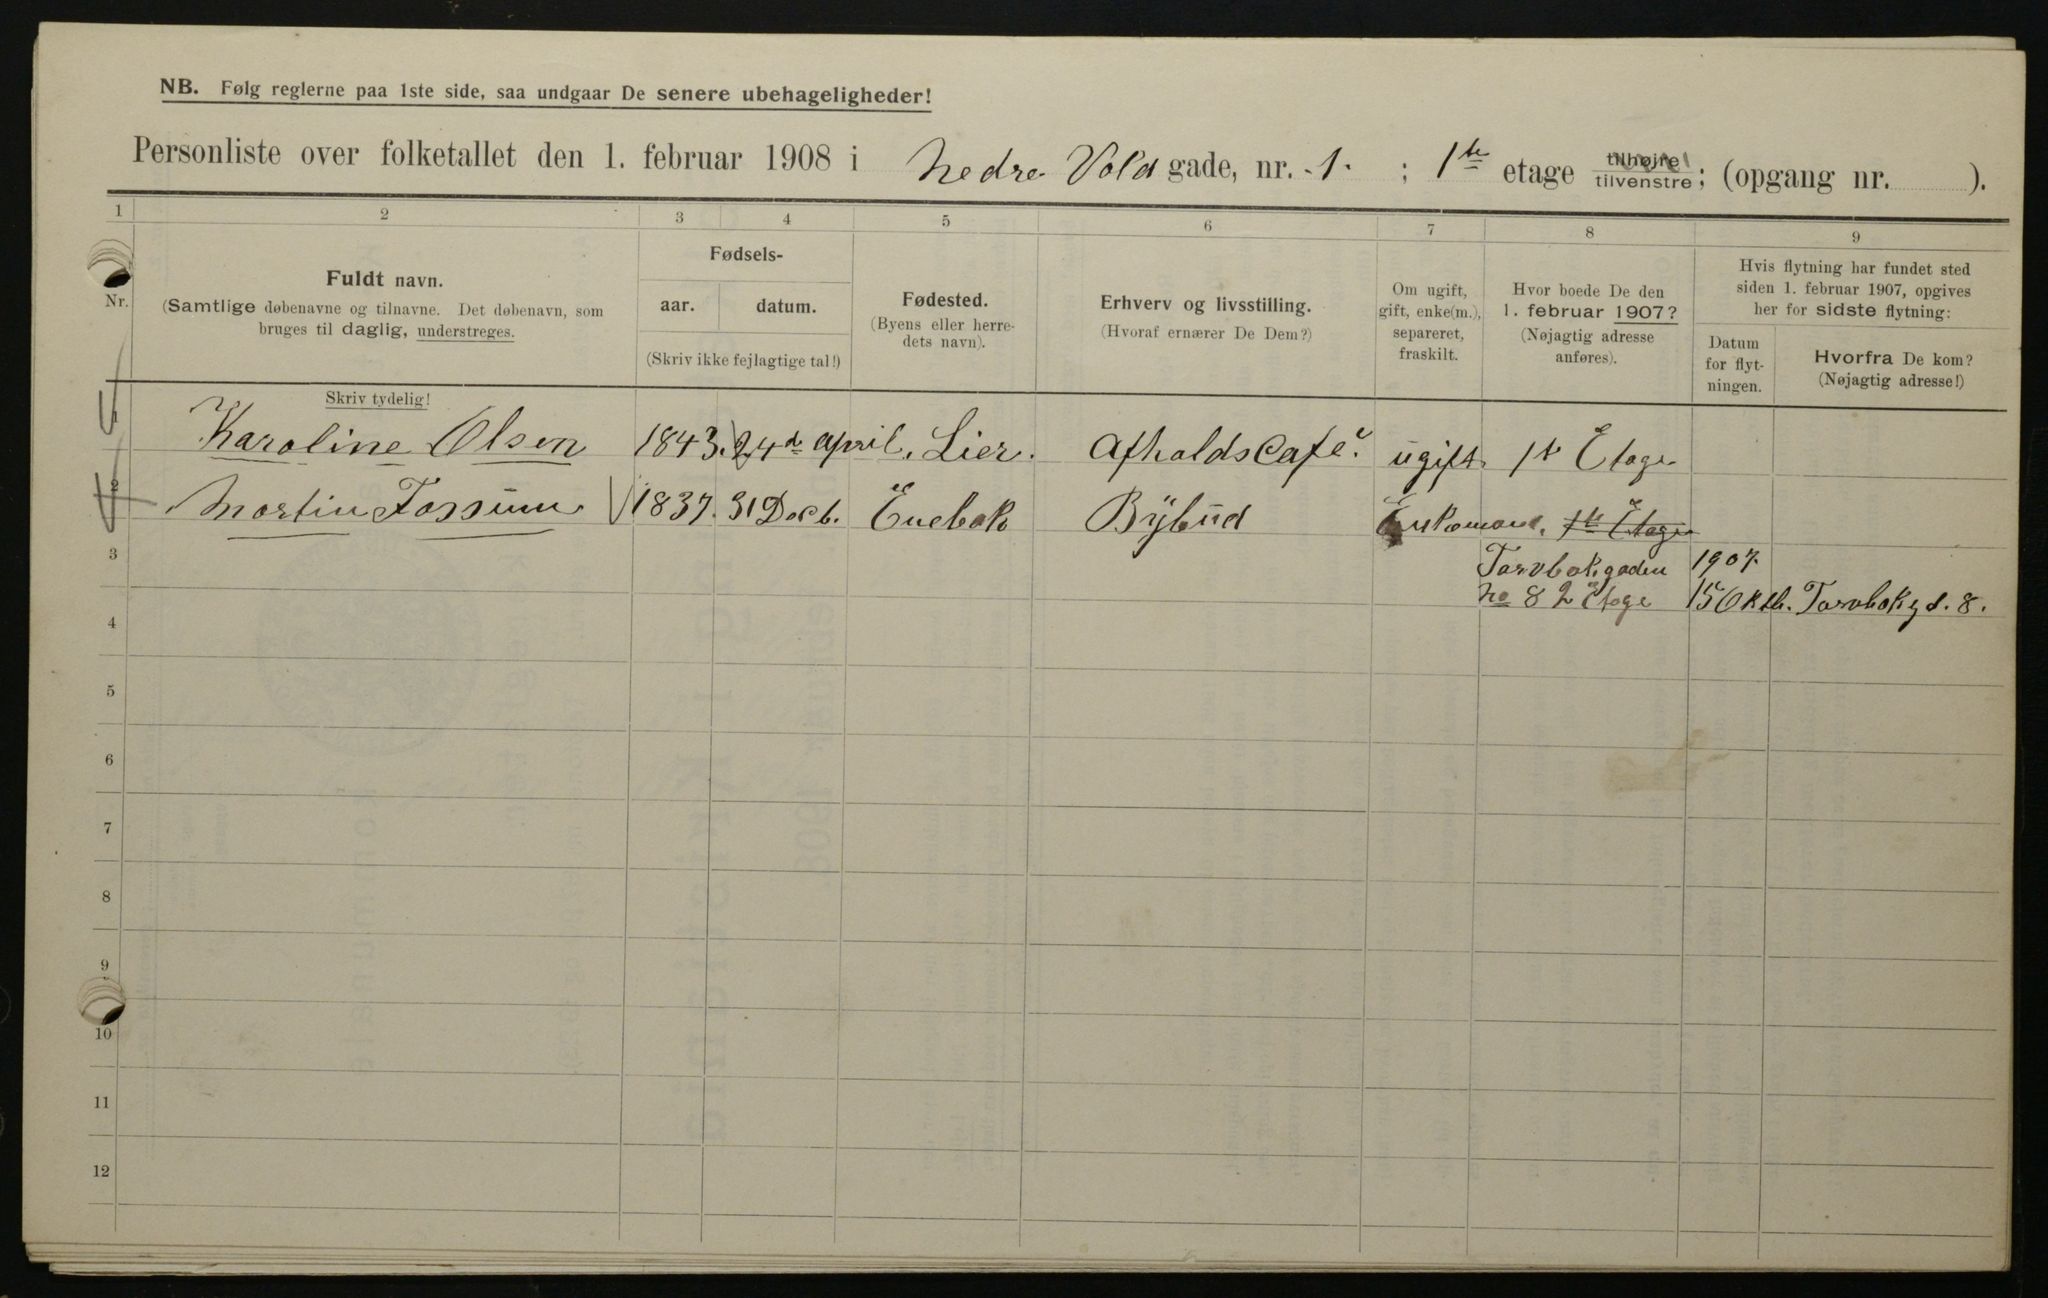 NB. Følg reglerne paa 1ste side, saa undgaar De senere ubehageligheder!
Personliste over folketallet den 1. februar 1908 i Nedre Vold gade, nr. 1. ; 1ste etage tilhøire tilvenstre; (opgang nr. ).
1 2 3 4 5 6 7 8 9
Nr.
Fuldt navn.
(Samtlige døbenavne og tilnavne. Det døbenavn, som
bruges til daglig, understreges.
Skriv tydelig!
Fødsels-
aar. datum.
(Skriv ikke fejlagtige tal!)
Fødested.
(Byens eller herre-
dets navn).
Erhverv og livsstilling.
(Hvoraf ernærer De Dem?)
Om ugift,
gift, enke(m.),
separeret,
fraskilt.
Hvor boede De den
1. februar 1907?
(Nøjagtig adresse
anføres).
Hvis flytning har fundet sted
siden 1. februar 1907, opgives
her for sidste flytning:
Datum
for flyt-
ningen.
Hvorfra De kom?
(Nøjagtig adresse!)
1 Karoline Olsen 1843. 24d april. Lier. Afholdscafé. ugift. 1st Etage
2 Martin Fossum 1837. 31 Decb. Enebak Bybud Enkemand. 1ste Etage
3 Torvbakgaden 1907.
No 8 2 Etage 15 Oktb. Torvbakgd. 8.
4
5
6
7
8
9
10
11
12